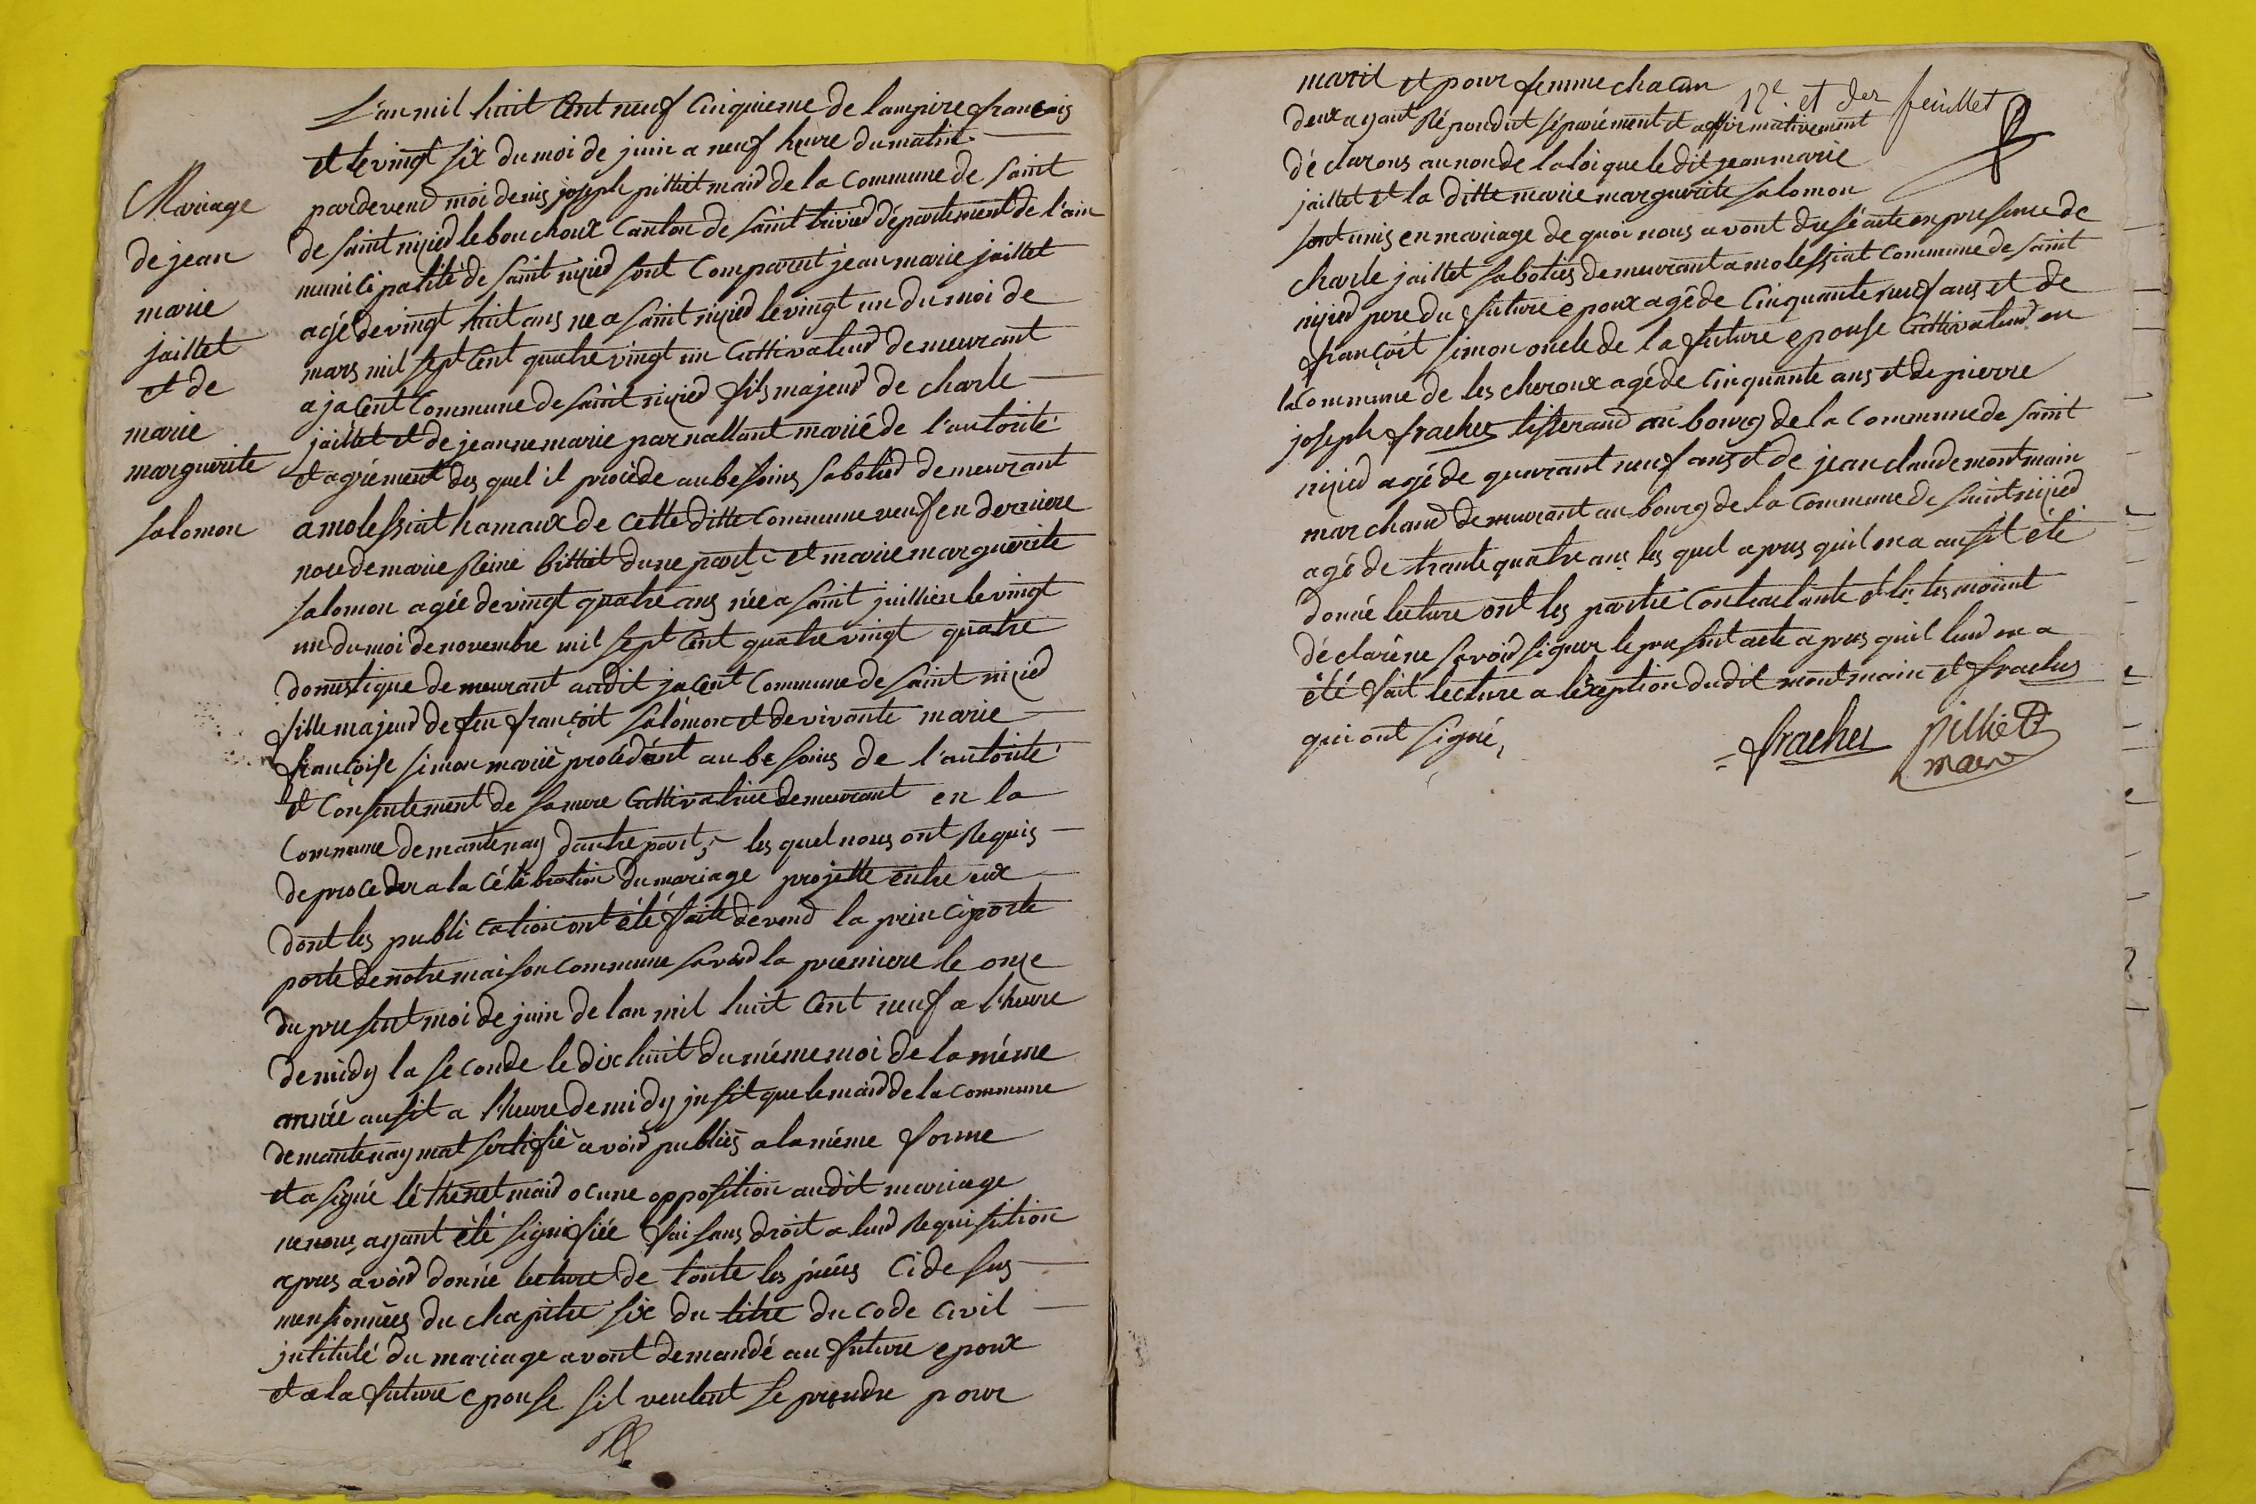 L'an mil huit Cent neuf Cinquieme de lampire francais
et le vingt six du moi de juin a neuf heure du matin
pardevend moi denis joseph pilliet maid de la Commune de Saint
de Saint nizied le bouchoux Canton de Saint trivied département de l'ain
municipalité de Saint nizied sont Comparut jean marie jaillet
agé de vingt huit ans ne a Saint nizied le vingt un du moi de
mars mil sept Cent quatre vingt un Cultivateud demeurant
a jaCent Commune de Saint nizied fils majeud de charle
jaillet et de jeanne marie parnallant marié de l'autorité
et agrément des quel il procède au besoins sabotied demeurant
a molessiat hamaux de Cette ditte Commune veuf en derniere
noce de marie Reine dune part et marie marguerite
Salomon agée de vingt quatre ans née a Saint juillien le vingt
un du moi de novembre mil sept Cent quatre vingt quatre
domestique demeurant audit jaCent Commune de Saint nizied
fille majeud de feu françoit salomon et de vivante marie
françoise simon marié procédent au besoins de l'autorité
et Consentement de sa mere Cultivatrice demeurant en la
Commune de mantenay dautre part, les quel nous ont Requis
de proceder a la Célébration du mariage projette entre eux
dont les publication ont été faite devend la principorte
porte de notre maison commune savoid la premiere le onze
du present moi de juin de lan mil huit Cent neuf a lheure
de midy la seconde le dix huit du même moi de la même
année ausit a l'heure de midy insit que le maid de la commune
de mantenay mat sertifié avoid publiés a la même forme
et a signé lé thenet maid ocune opposition audit mariage
ne nous ayant été signifiée faisans droit a leud Requisition
apres avoid donné lecture de toute les piéces Cidesus
mensionnées du chapitre six du titre du code Civil
intitulé du mariage avont demandé au future epoux
et a la future epouse sil veulent se prendre pour
Mariage
de jean
marie
jaillet
et de
marie
marguerite
salomon
12e et der feuillet
marit et pour femme chacun
deux ayant Répondut séparément et affirmativement
déclarons au non de la loi que le dit jean marie
jaillet et la ditte marie marguerite salomon
sont unis en mariage de quoi nous avont dresé acte en presence de
charle jaillet saboties demeurant a molessiat commune de saint
nizied pere du future epoux agé de Cinquante neuf ans et de
françoit simon oncle de la future epouse Cultivateud en
la Commune de les cheroux agé de Cinquante ans et de pierre
joseph frachet tisserand au bourg de la Commune de saint
nizied agé de quarant neuf ans et de jean claude montmain
marchand demeurant au bourg de la Commune de saint nizied
agé de trante quatre ans les quel apres quil en a ausit été
donné lecture ont les partie Contractante et les temoient
déclaré ne savoid signer le present acte apres quil leud en a
été fait lecture a léxception dudit montmain et frachet
qui ont signé,
frachet pilliet
maire